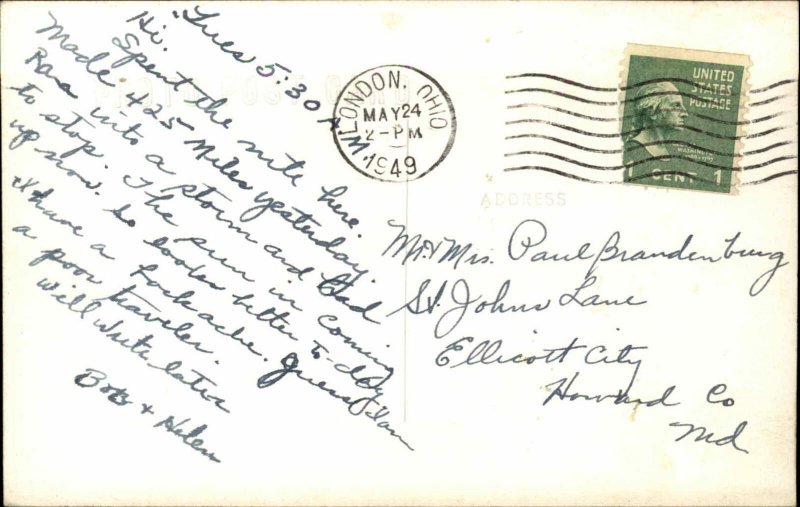 Tues 5:30 A.M
Hi.
Spent the nite here.
Made 425 Miles yesterday.
Ran into a storm and had
to stop. The sun in coming
up now. So looks better to-day
& I have a backache. Guess I am
a poor traveler.
Will write later
Bob & Helen
PHOTO POST CARD
LONDON, OHIO
MAY 24
2-PM
1949
UNITED
STATES
POSTAGE
WASHINGTON
1 CENT 1
ADDRESS
Mr. & Mrs. Paul Brandenburg
St. Johns Lane
Ellicott City
Howard Co
Md